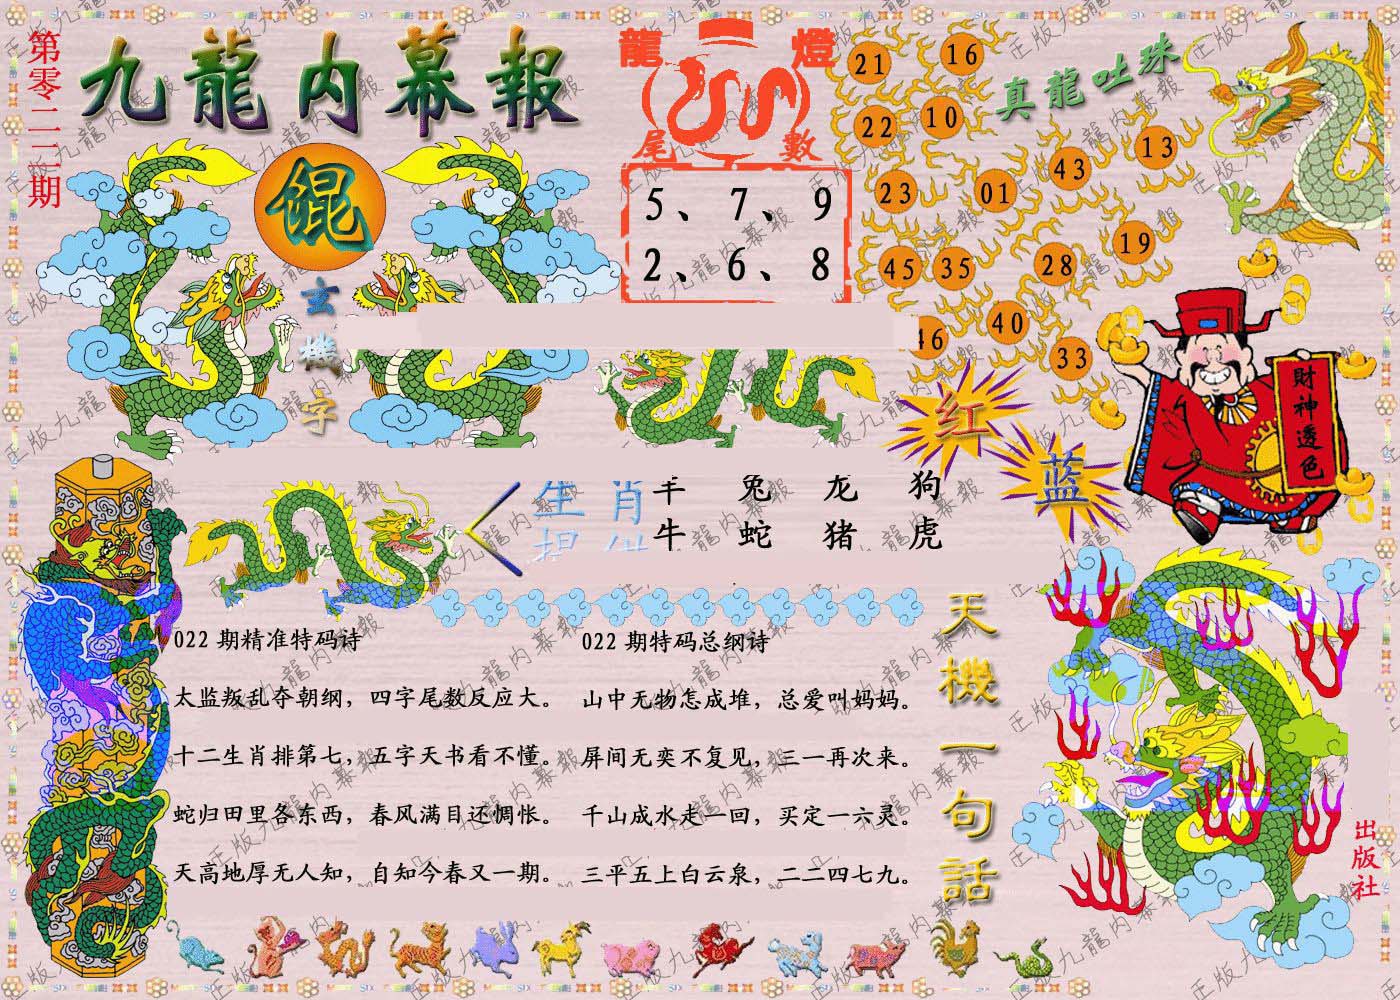 第零二二期
九龍内幕報
龍燈
尾數
5、7、9
2、6、8
真龍吐珠
21
16
22
10
13
43
23
01
19
45
35
28
46
40
33
錕
玄機字
紅
蓝
財神透色
生肖
羊 兔 龙 狗
牛 蛇 猪 虎
022 期精准特码诗
太监叛乱夺朝纲，四字尾数反应大。
十二生肖排第七，五字天书看不懂。
蛇归田里各东西，春风满目还惆怅。
天高地厚无人知，自知今春又一期。
022 期特码总纲诗
山中无物怎成堆，总爱叫妈妈。
屏间无奕不复见，三一再次来。
千山成水走一回，买定一六灵。
三平五上白云泉，二二四七九。
天機一句話
出版社
正版九龍内幕報